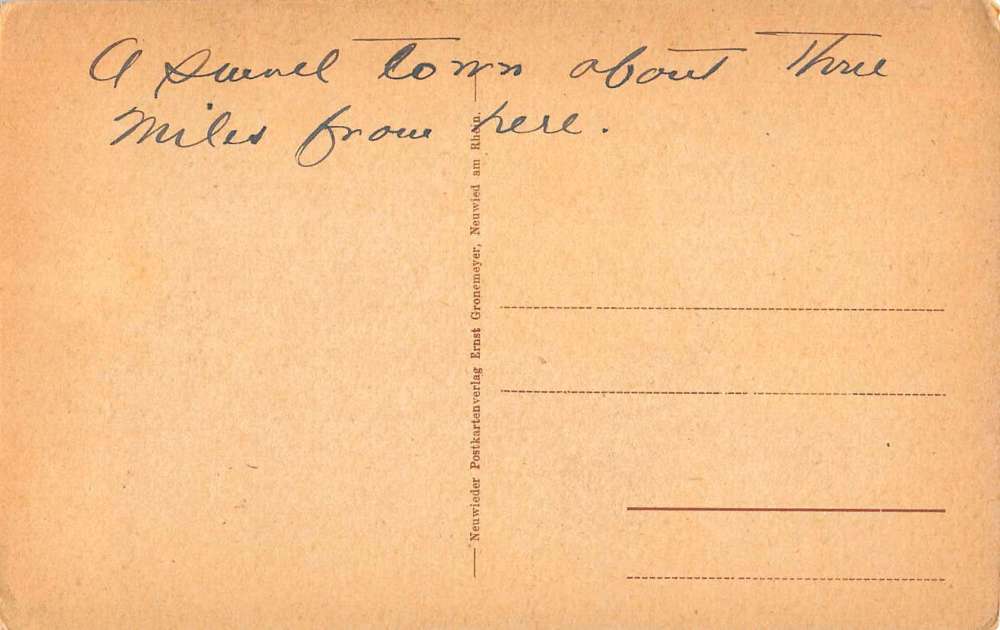 A small town about three
Miles from here.
Neuwieder Postkartenverlag Ernst Gronemeyer, Neuwied am Rhein.